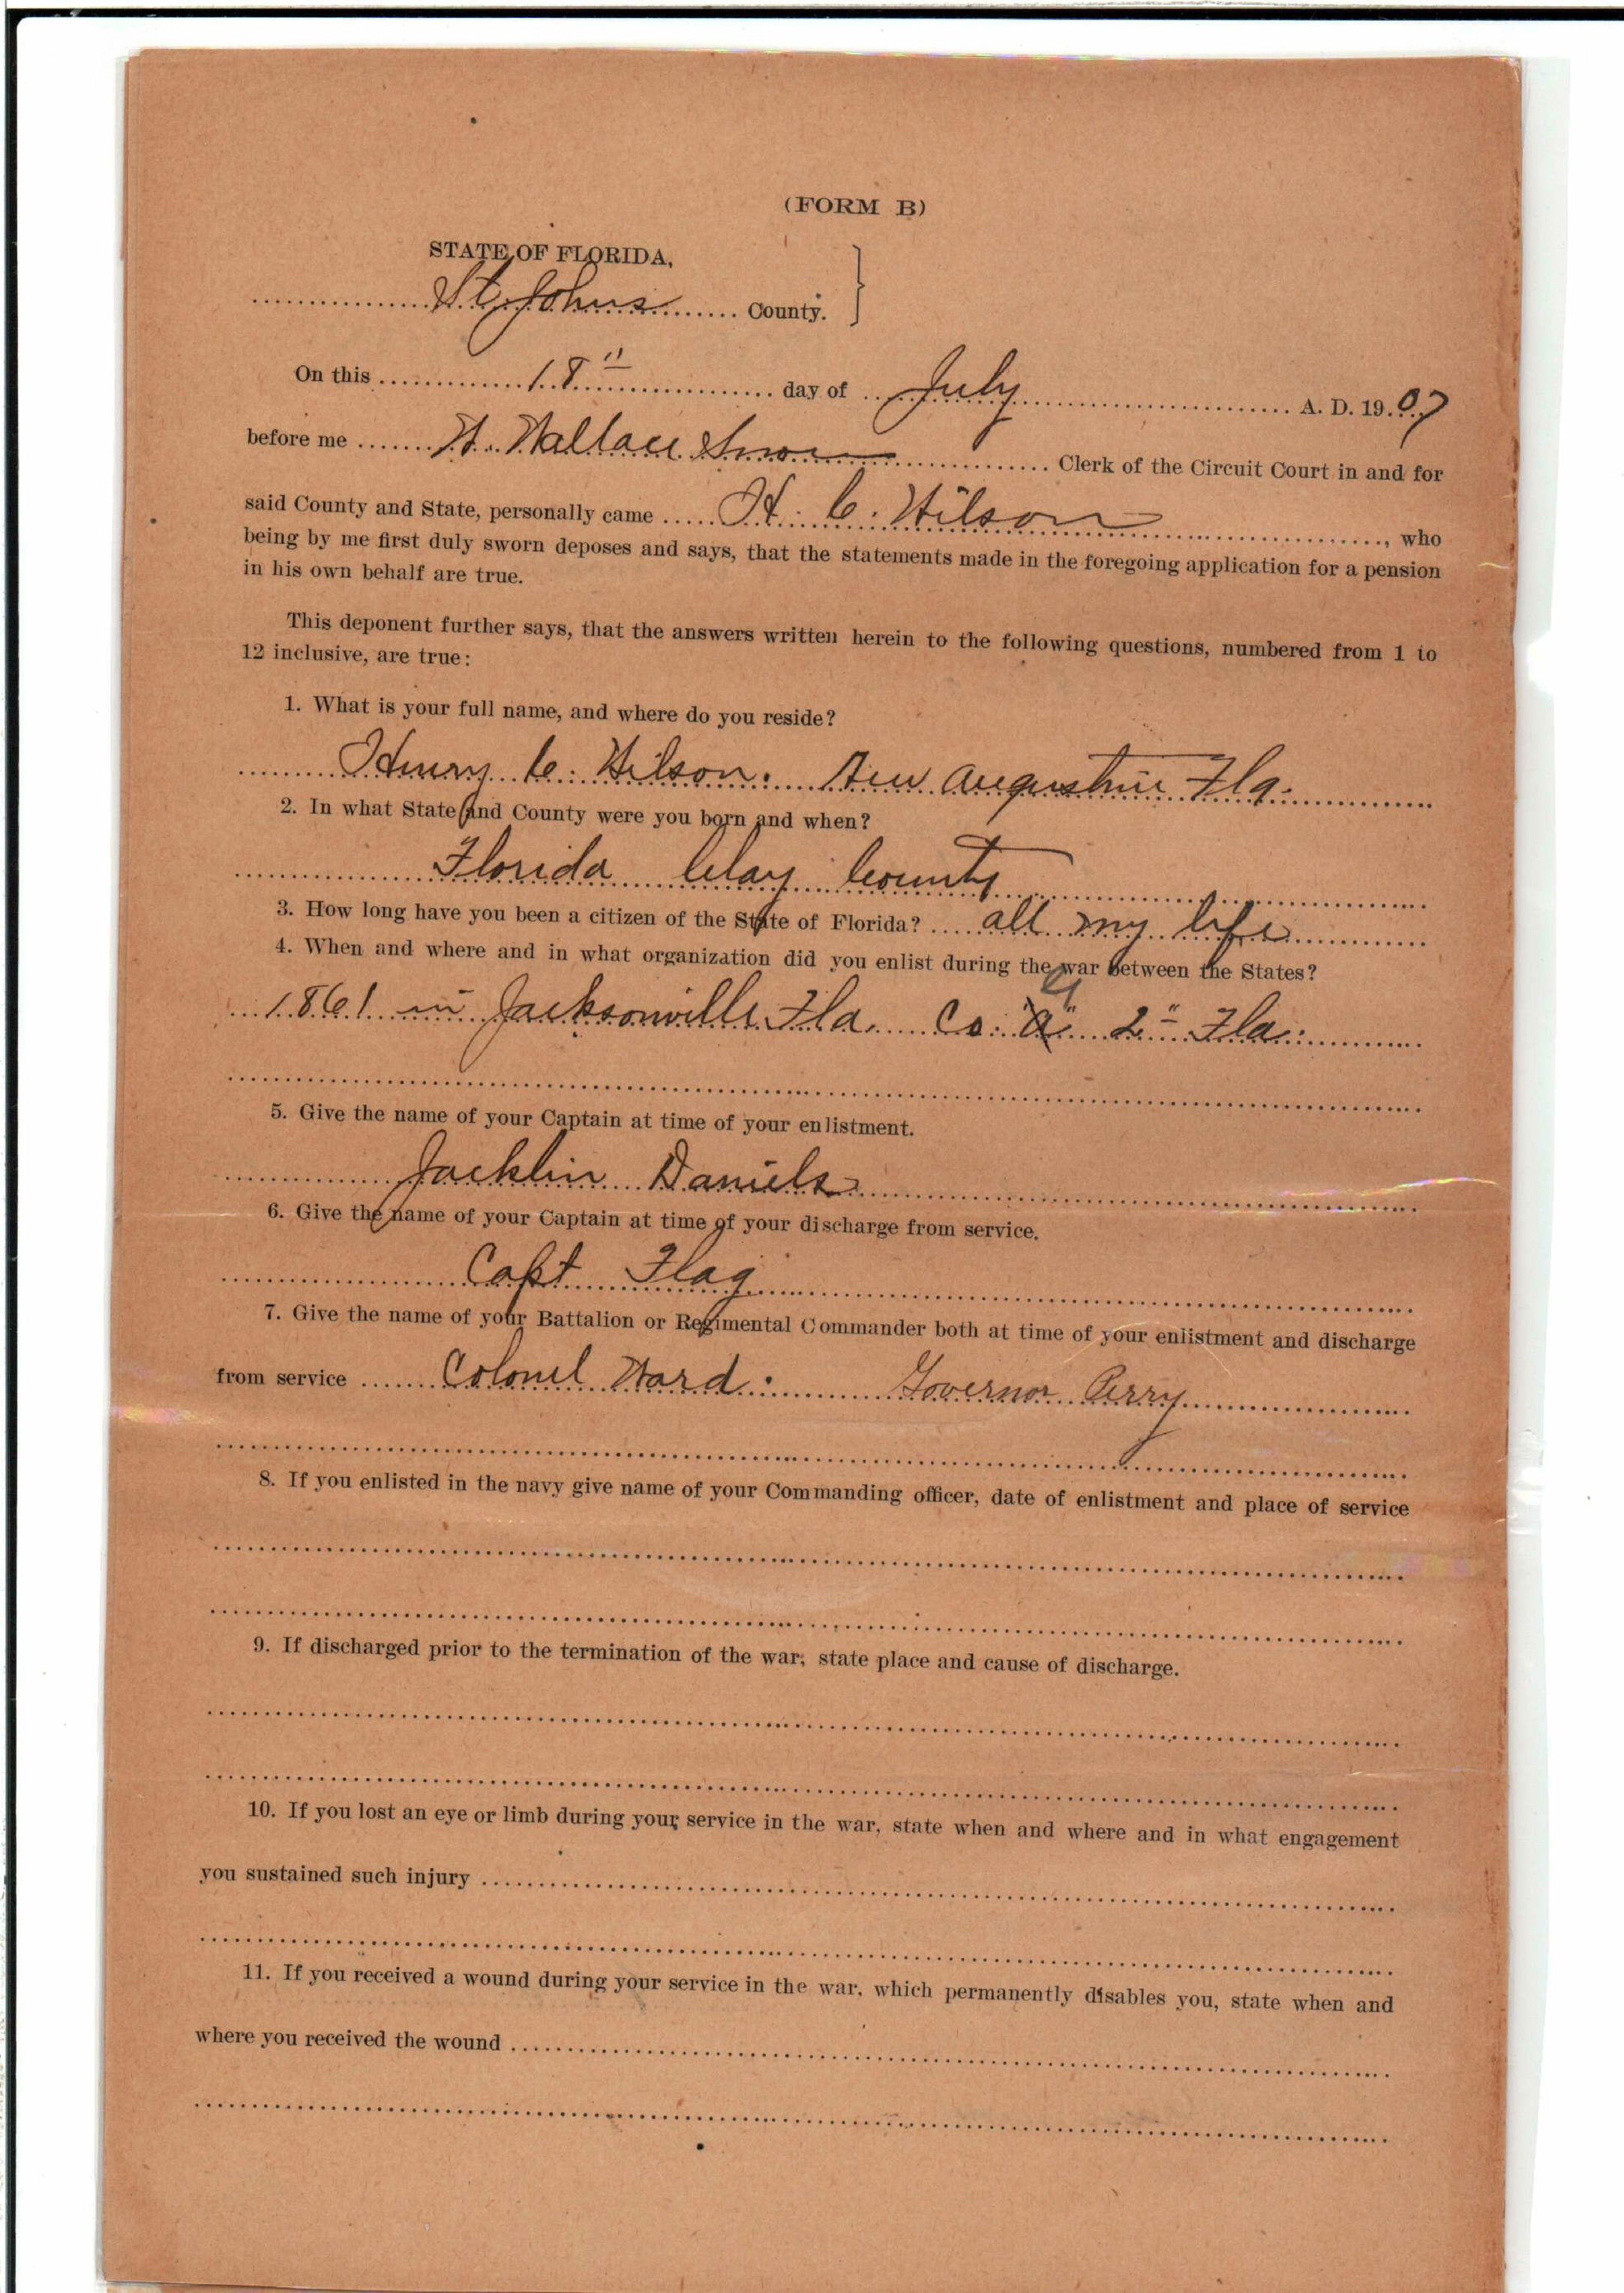 (FORM B)
STATE OF FLORIDA,
St Johns County.
On this 18" day of July A. D. 1907
before me W. Wallace Snow Clerk of the Circuit Court in and for
said County and State, personally came H. C. Wilson, who
being by me first duly sworn deposes and says, that the statements made in the foregoing application for a pension
in his own behalf are true.
This deponent further says, that the answers written herein to the following questions, numbered from 1 to
12 inclusive, are true:
1. What is your full name, and where do you reside?
Henry C. Wilson. New Augustine Fla.
2. In what State and County were you born and when?
Florida Clay County
3. How long have you been a citizen of the State of Florida? all my life
4. When and where and in what organization did you enlist during the war between the States?
1861 in Jacksonville Fla. Co. 2" Fla.
5. Give the name of your Captain at time of your enlistment.
Jacklin Daniels
6. Give the name of your Captain at time of your discharge from service.
Capt Flag
7. Give the name of your Battalion or Regimental Commander both at time of your enlistment and discharge
from service Colonel Ward. Governor Perry
8. If you enlisted in the navy give name of your Commanding officer, date of enlistment and place of service
9. If discharged prior to the termination of the war, state place and cause of discharge.
10. If you lost an eye or limb during your service in the war, state when and where and in what engagement
you sustained such injury
11. If you received a wound during your service in the war, which permanently disables you, state when and
where you received the wound